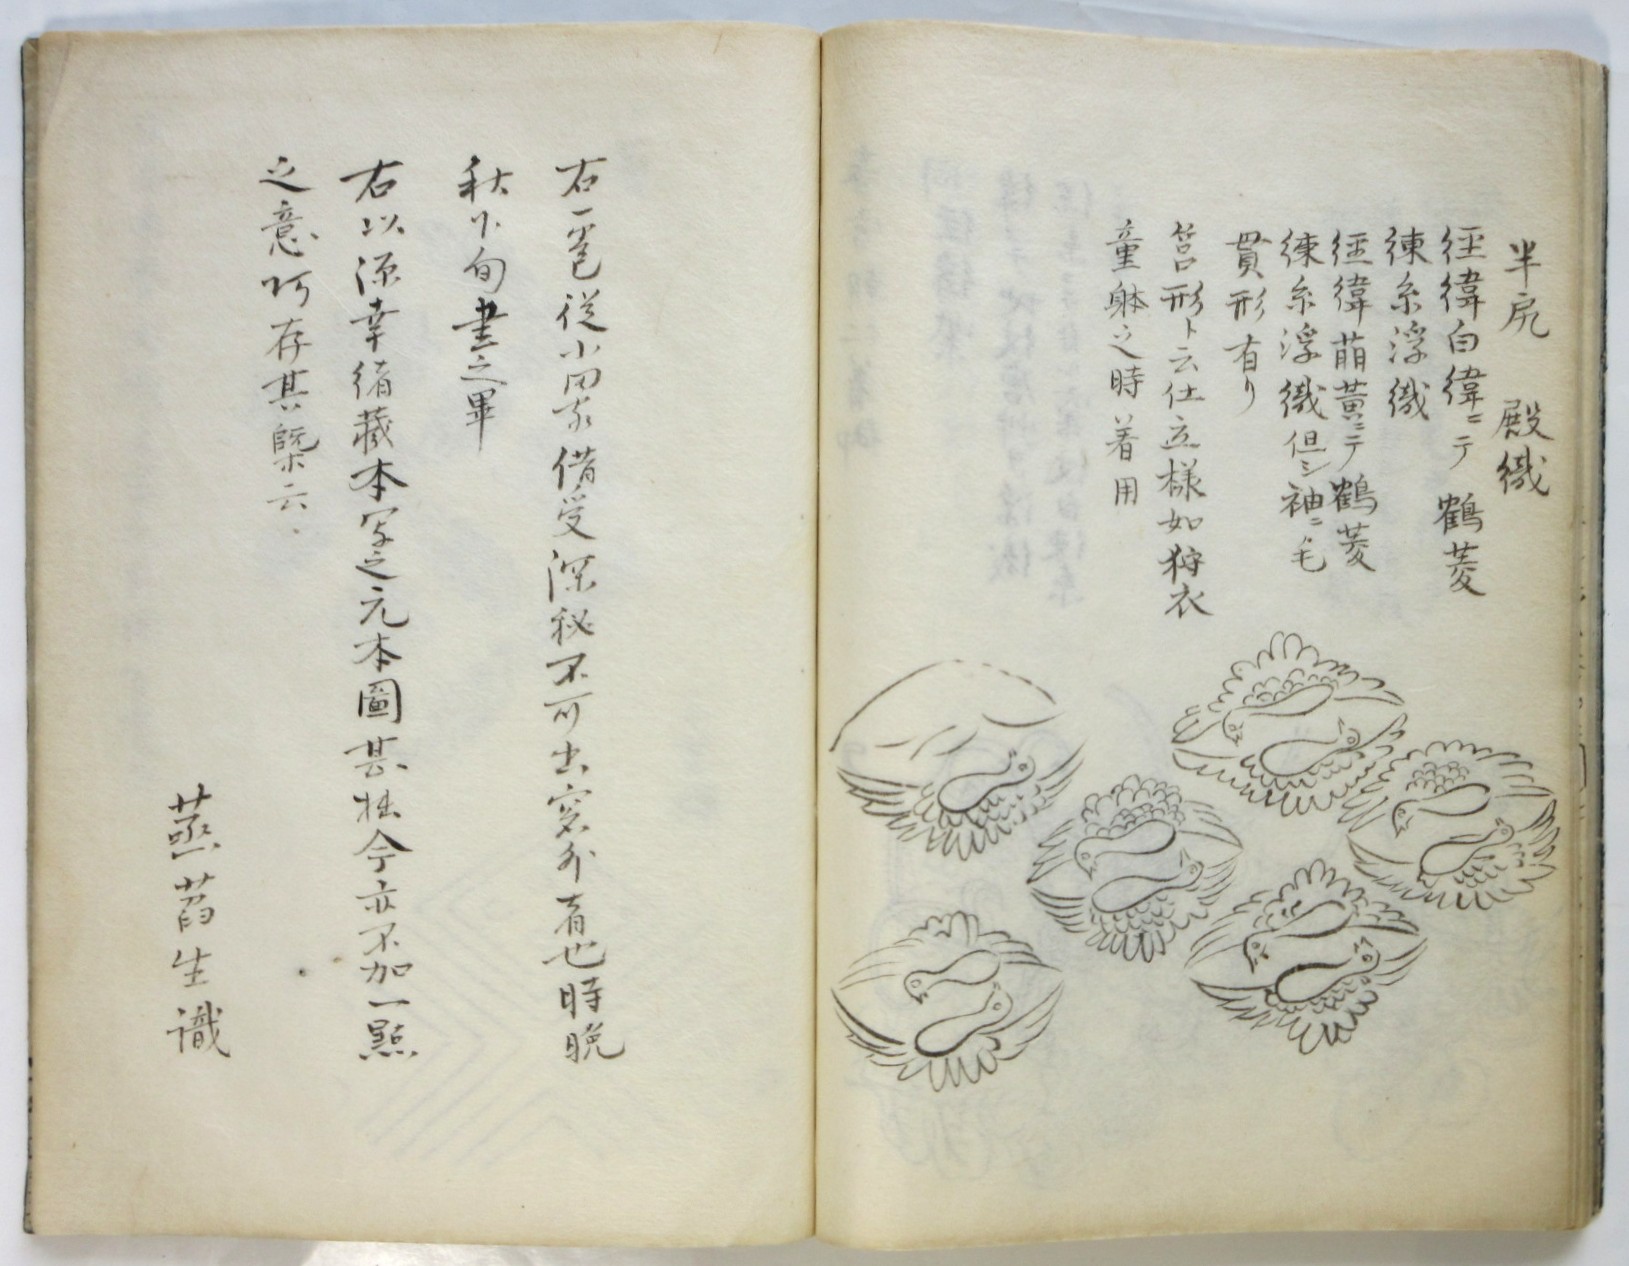 半尻 殿織
経緯白緯ニテ鶴菱
練糸浮織
経緯萠黄ニテ鶴菱
練糸浮織但シ袖ニ毛
貫形有り
筥形ト云仕立様如狩衣
童躰之時着用
右一巻従小田家借受深秘不可出窓外者也時晩
秋下旬書之畢
右以源幸緒蔵本写之元本圖甚拙今亦不加一點
之意所存其槩云
燕石生識